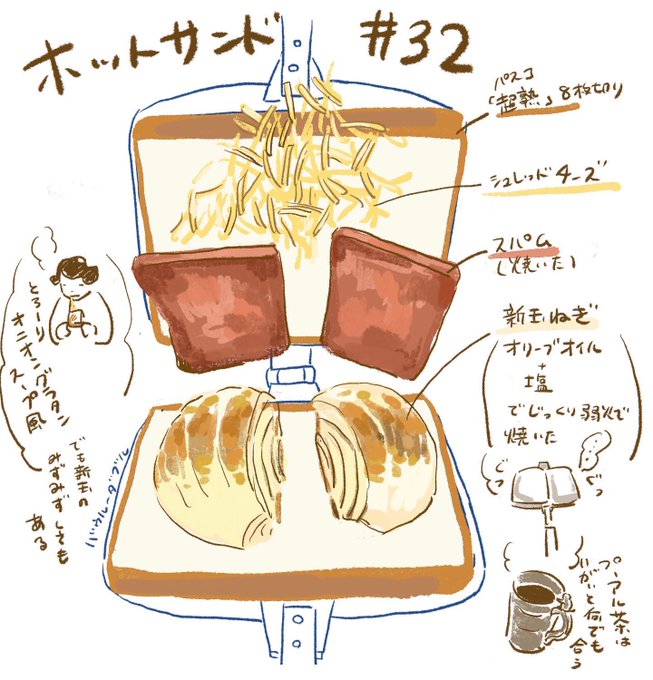 ホットサンド #32
パスコ
「超熟」8枚切り
シュレッドチーズ
スパム
(焼いた)
新玉ねぎ
オリーブオイル
+
塩
でじっくり弱火で
焼いた
ぐっ
ぐっ
プーアル茶は
いがいと何でも
合う
とろーり
オニオングラタン
スープ風
でも新玉の
みずみずしさも
ある
バウルーダブル